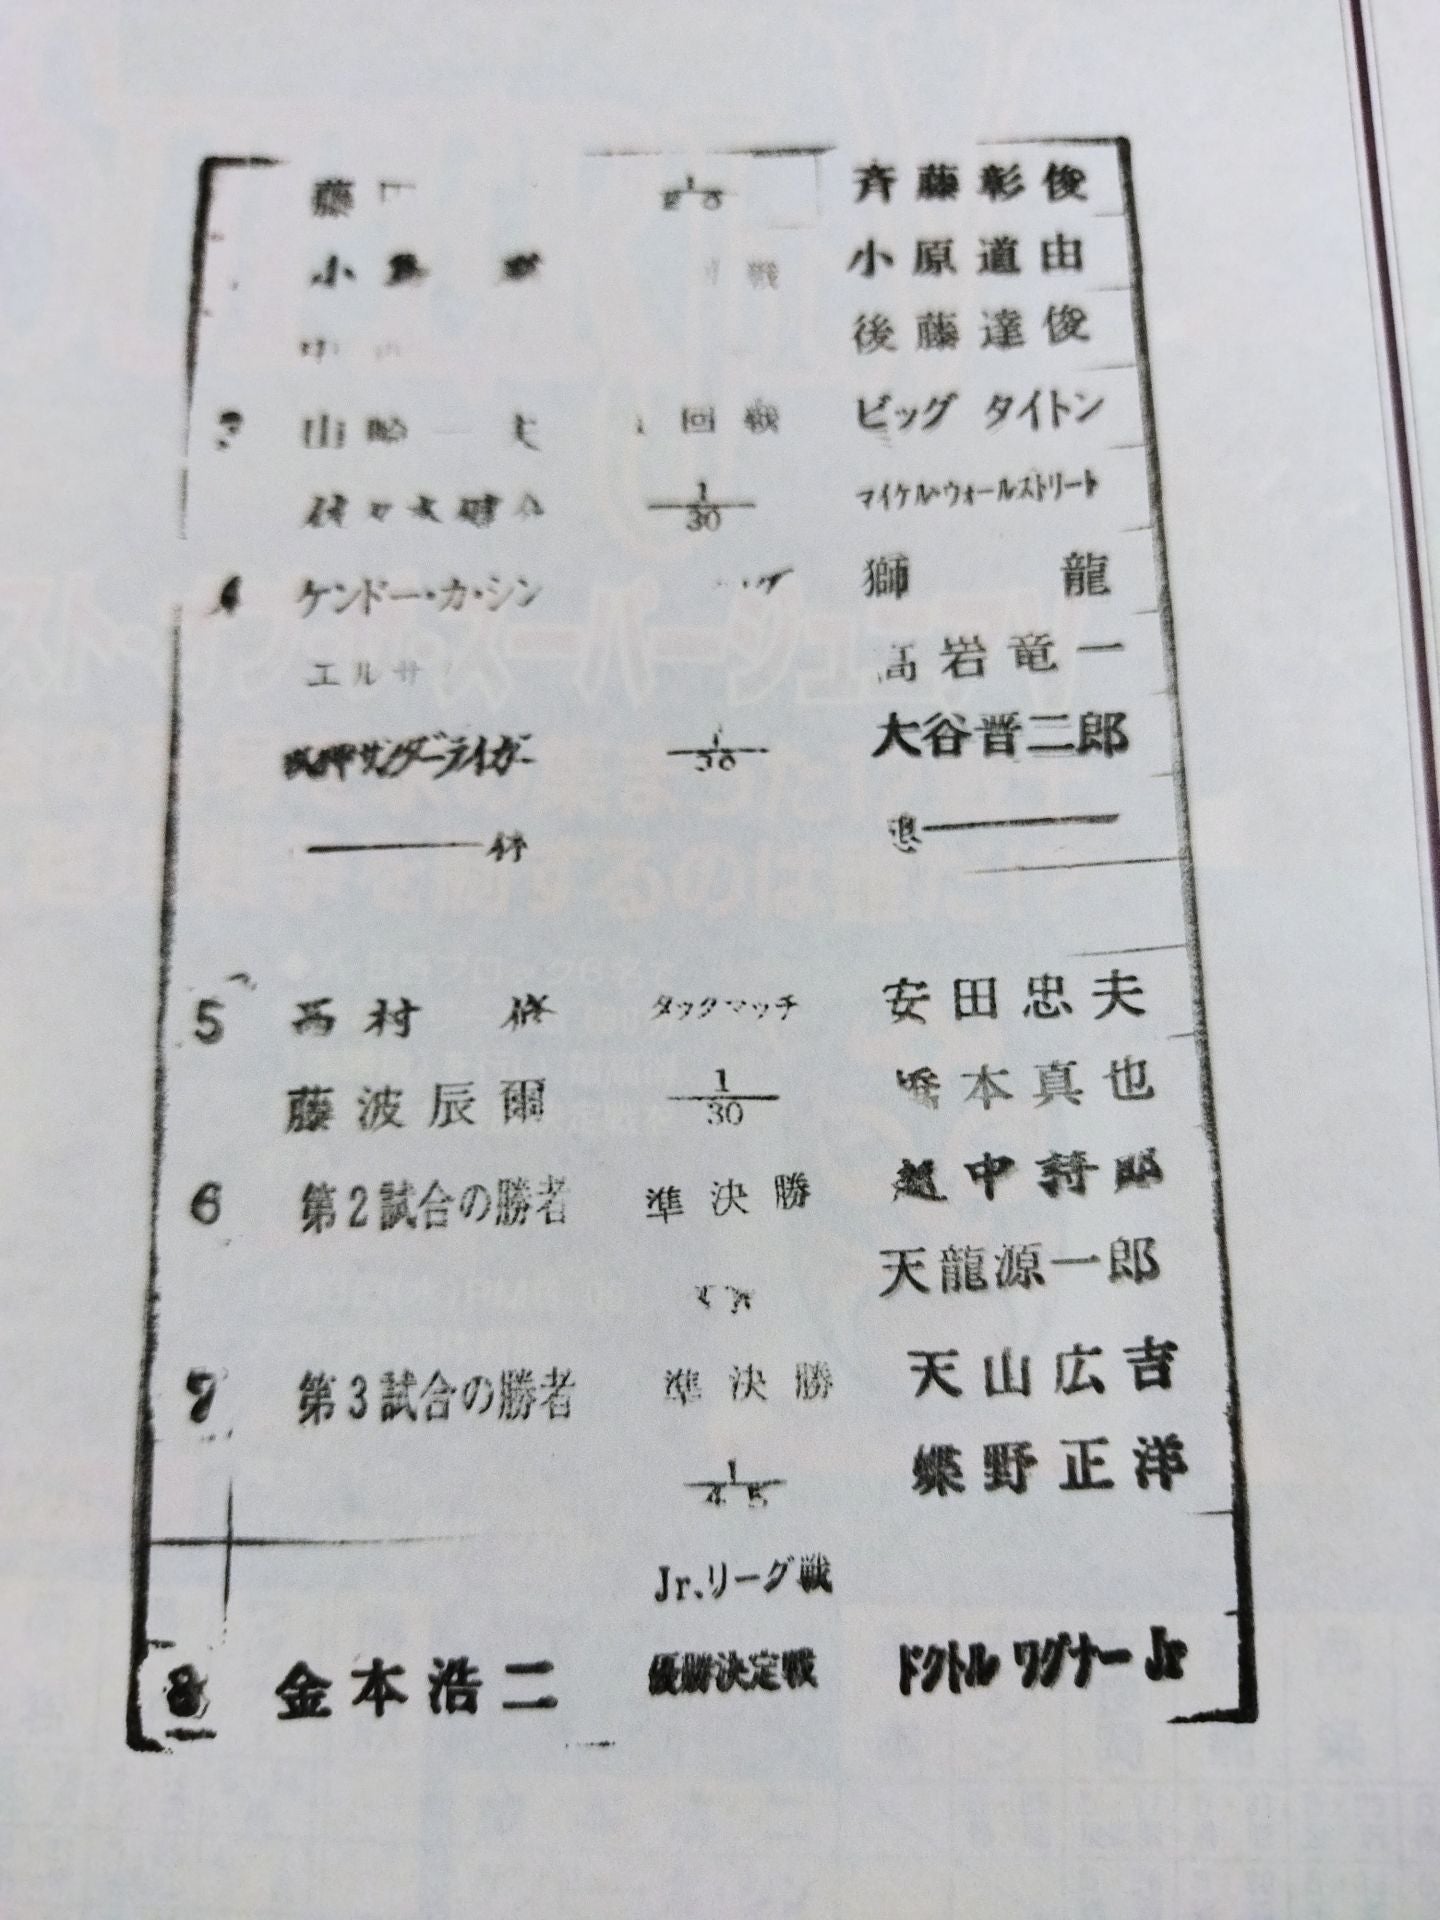 藤 1/20 斉藤彰俊
小 戦 小原道由
後藤達俊
山 回戦 ビッグ タイトン
1/30 マイケル・ウォールストリート
ケンドー・カ・シン 獅龍
エルサ 高岩竜一
サンダーライガー 1/30 大谷晋二郎
休 憩
5 西村 修 タッグマッチ 安田忠夫
藤波辰爾 1/30 橋本真也
6 第2試合の勝者 準決勝 越中詩郎
天龍源一郎
7 第3試合の勝者 準決勝 天山広吉
1/45 蝶野正洋
Jr.リーグ戦
8 金本浩二 優勝決定戦 ドクトル ワグナー Jr